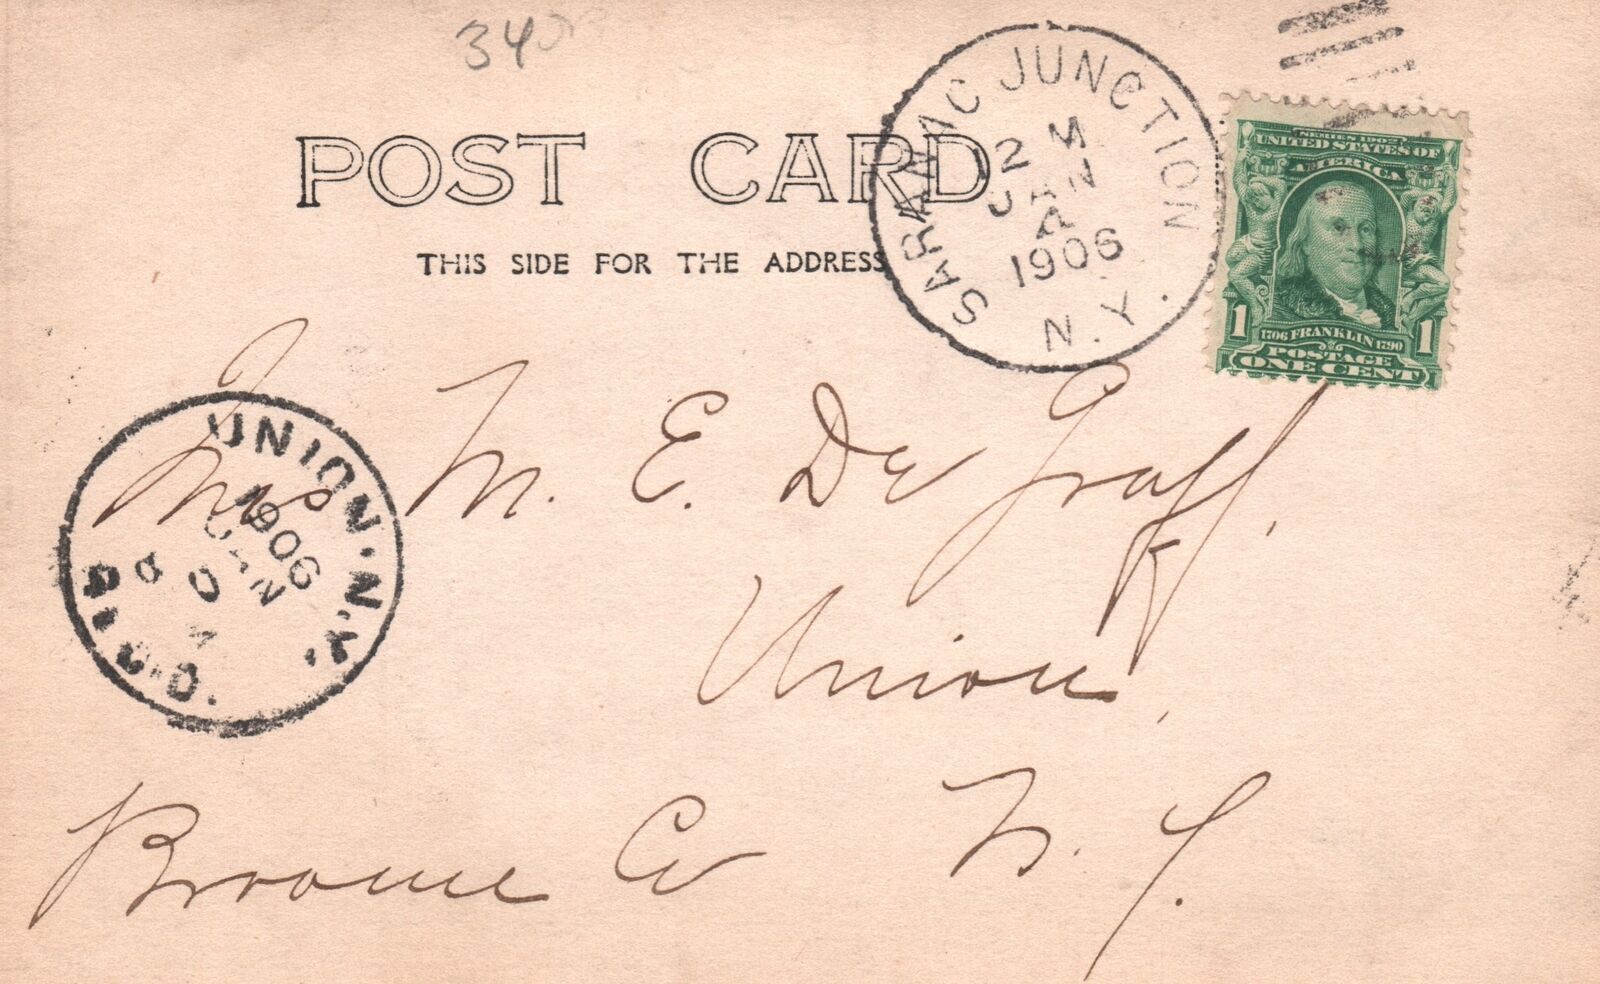 34
POST CARD
THIS SIDE FOR THE ADDRESS
SARANAC JUNCTION
2 M
JAN
4
1906
N.Y.
SERIES 1902
UNITED STATES OF
AMERICA
1 1
1706 FRANKLIN 1790
POSTAGE
ONE CENT
UNION. N.Y.
1906
JAN
REC'D.
Mrs M. E. De Graff,
Union,
Broome Co N. Y.